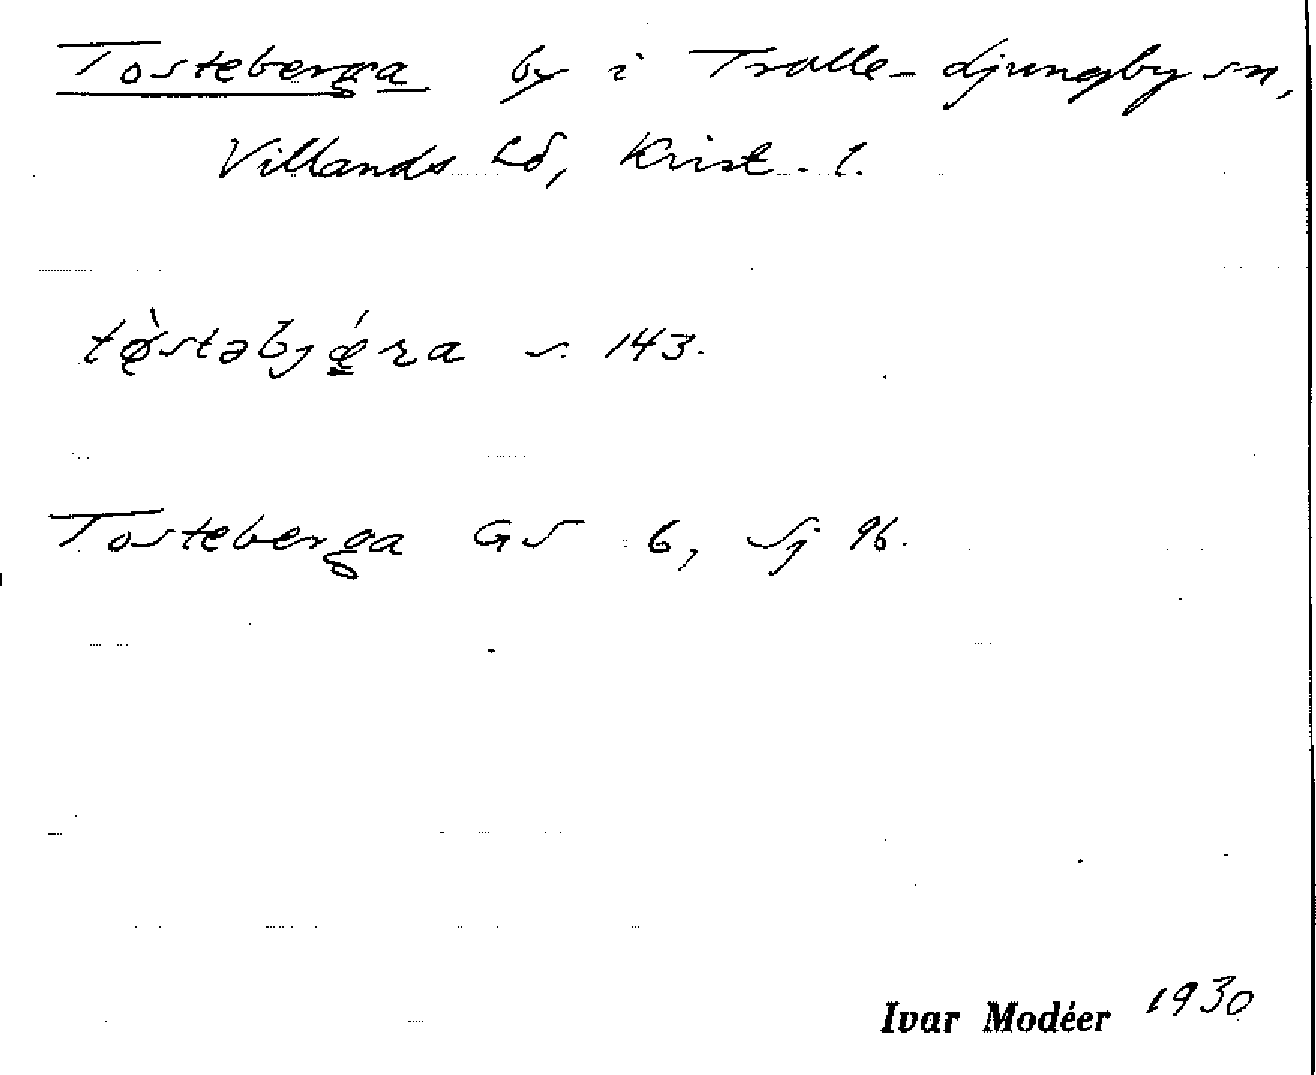 Tosteberga by i Trolle-Ljungby sn,
Villands hd, Krist. l.
tø̀stəbjǽra s. 143.
Tosteberga GS 6, Sj 96.
Ivar Modéer 1930